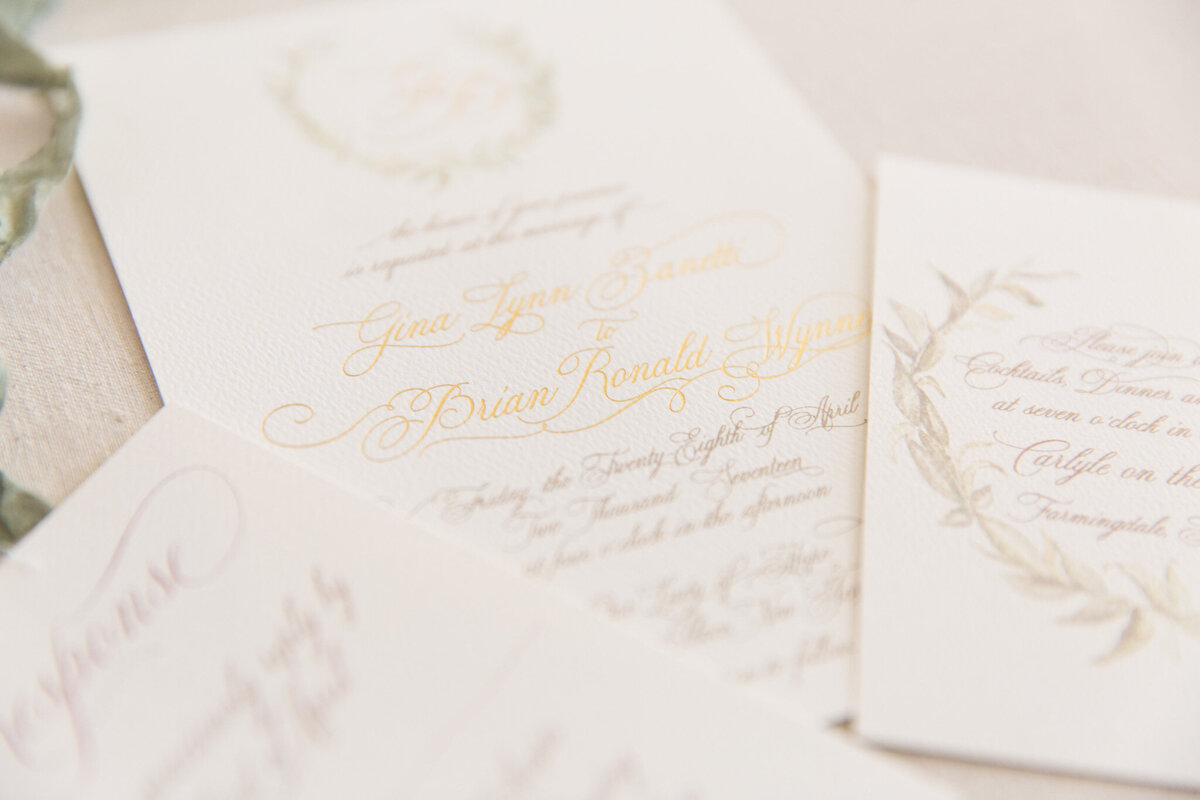 the honour of your presence
is requested at the marriage of
Gina Lynn Zanetti
to
Brian Ronald Wynne
Friday the Twenty-Eighth of April
Two Thousand Seventeen
at four o'clock in the afternoon
Our Lady of Hope
Please join
Cocktails, Dinner a
at seven o'clock in
Carlyle on th
Farmingdale,
response
reply by